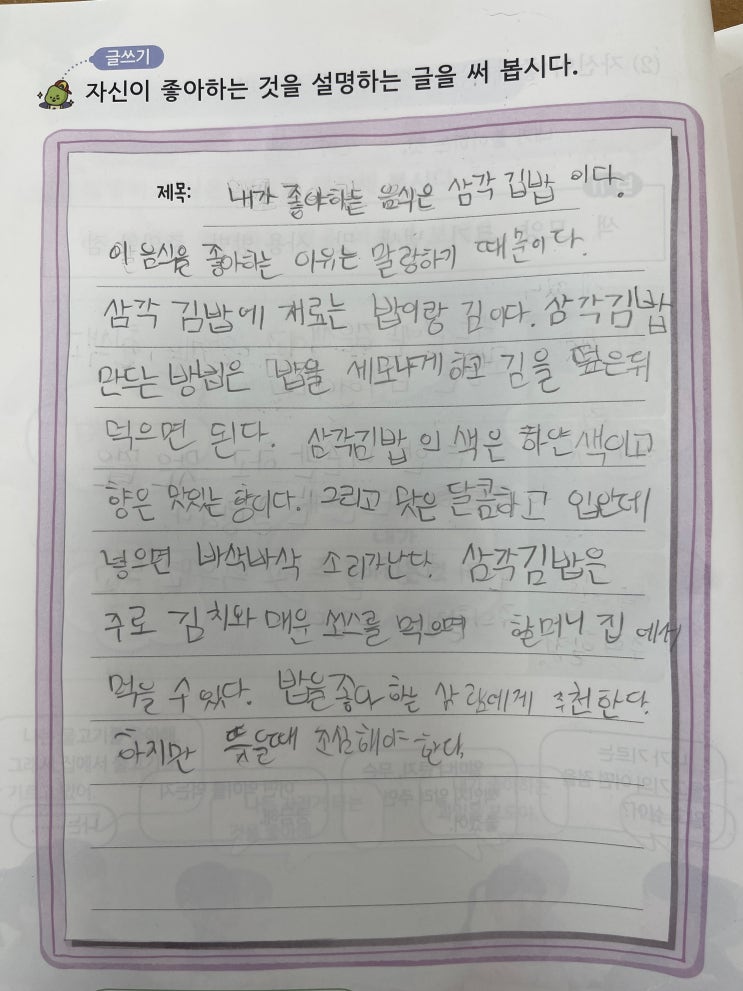 글쓰기
자신이 좋아하는 것을 설명하는 글을 써 봅시다.
제목: 내가 좋아하는 음식은 삼각 김밥 이다.
이 음식을 좋아하는 이유는 말랑하기 때문이다.
삼각 김밥에 재료는 밥이랑 김이다. 삼각김밥
만드는 방법은 밥을 세모나게 하고 김을 덮은뒤
먹으면 된다. 삼각김밥 의 색은 하얀색이고
향은 맛있는 향이다. 그리고 맛은 달콤하고 입안데
넣으면 바삭바삭 소리가난다. 삼각김밥은
주로 김치와 매운 쏘쓰를 먹으며 할머니 집 에서
먹을 수 있다. 밥을 좋아 하는 사람에게 추천 한다.
하지만 뜻을때 조심해야 한다.